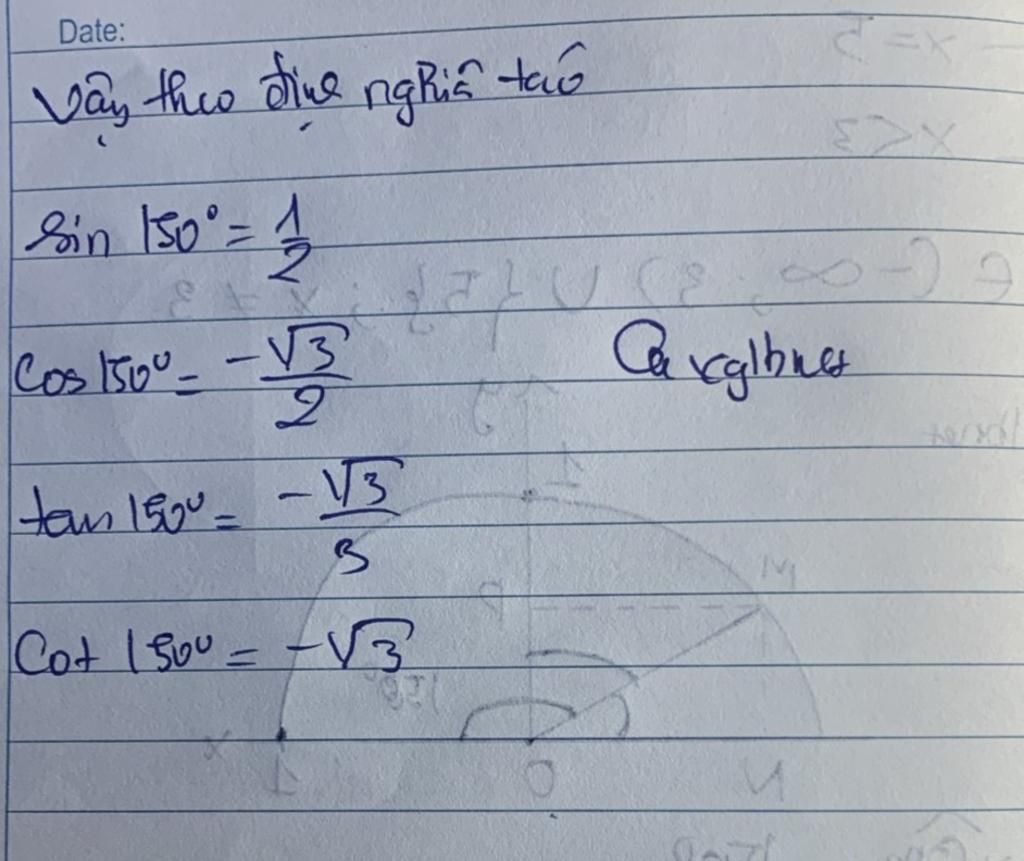 Date:
Vậy theo định nghĩa ta có
sin 150° = 1/2
cos 150° = -√3/2
tan 150° = -√3/3
cot 150° = -√3